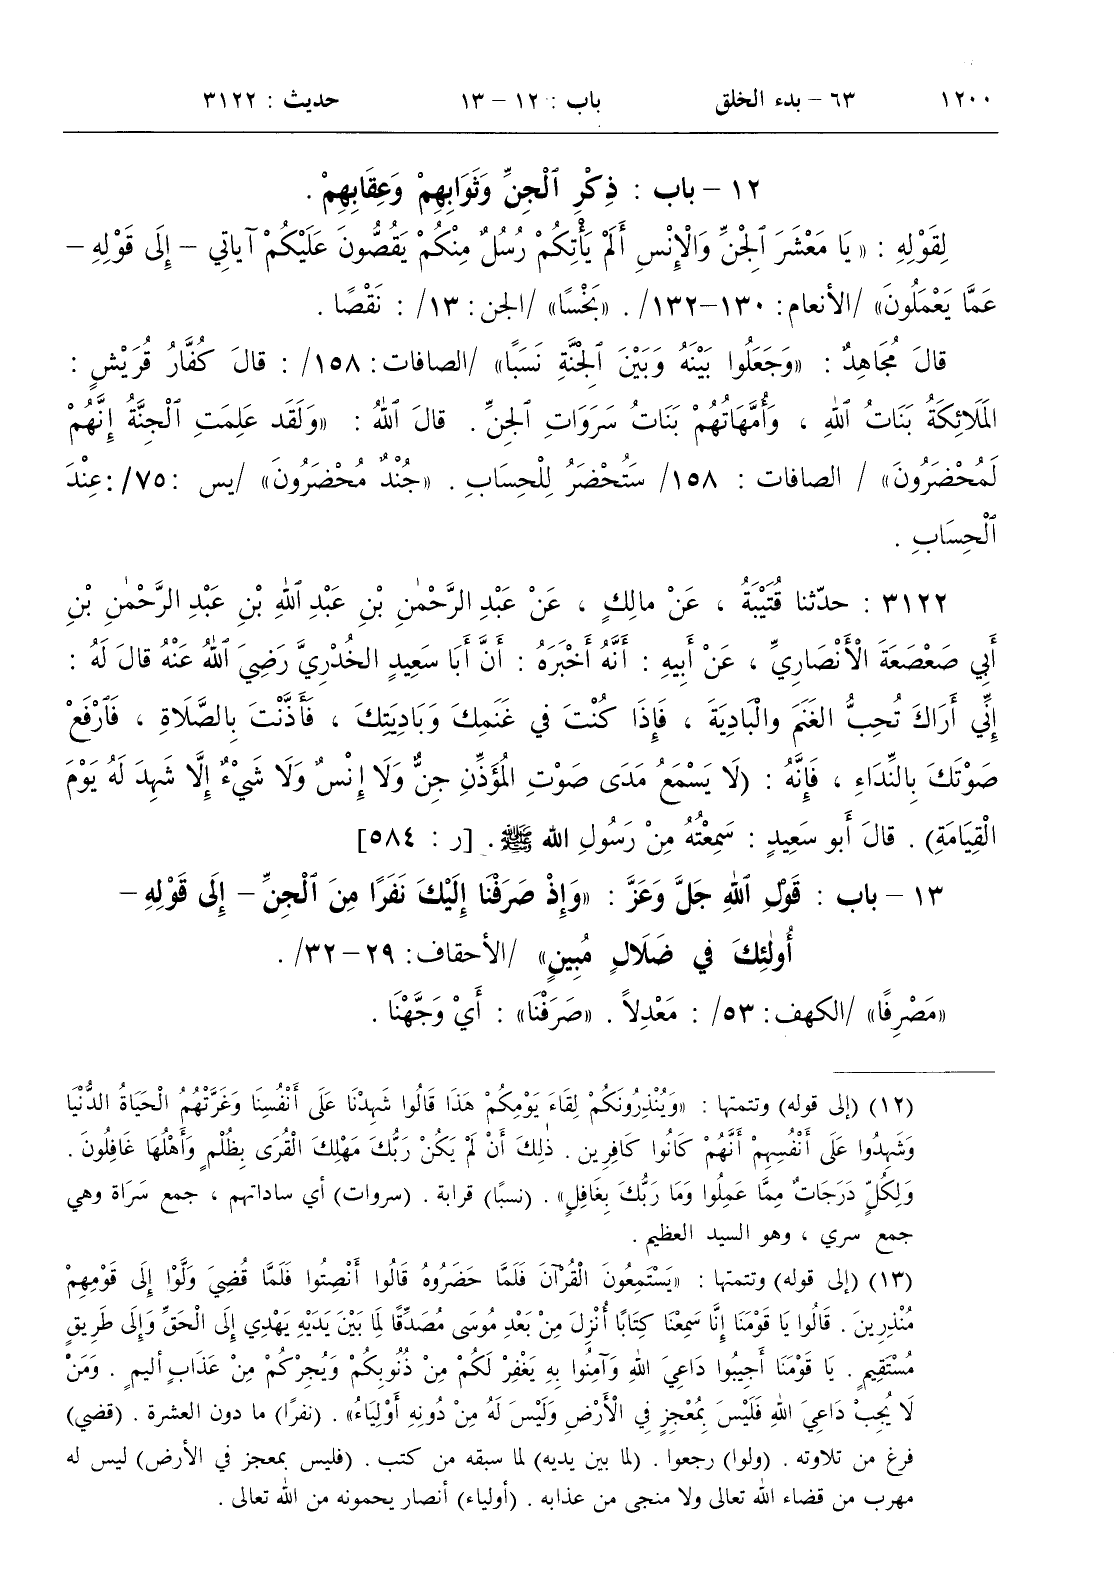 ١٢٠٠ ٦٣ – بدء الخلق باب : ١٢ – ١٣ حديث : ٣١٢٢
١٢ – باب : ذِكْرِ ٱلْجِنِّ وَثَوَابِهِمْ وَعِقَابِهِمْ .
لِقَوْلِهِ : « يَا مَعْشَرَ ٱلجِنِّ وَالْإِنْسِ أَلَمْ يَأْتِكُمْ رُسُلٌ مِنْكُمْ يَقُصُّونَ عَلَيْكُمْ آيَاتِي – إِلَى قَوْلِهِ –
عَمَّا يَعْمَلُونَ» /الأنعام: ١٣٠–١٣٢/ . «بَخْسًا» /الجن: ١٣/ : نَقْصًا .
قالَ مُجَاهِدٌ : «وَجَعَلُوا بَيْنَهُ وَبَيْنَ ٱلجِنَّةِ نَسَبًا» /الصافات: ١٥٨/ : قالَ كُفَّارُ قُرَيْشٍ :
المَلَائِكَةُ بَنَاتُ ٱللهِ ، وَأُمَّهَاتُهُمْ بَنَاتُ سَرَوَاتِ الجِنِّ . قالَ ٱللهُ : «وَلَقَد عَلِمَتِ ٱلْجِنَّةُ إِنَّهُمْ
لَمُحْضَرُونَ» / الصافات : ١٥٨/ سَتُحْضَرُ لِلْحِسَابِ . «جُنْدٌ مُحْضَرُونَ» /يس :٧٥/:عِنْدَ
ٱلْحِسَابِ .
٣١٢٢ : حدّثنا قُتَيْبَةُ ، عَنْ مالِكٍ ، عَنْ عَبْدِ الرَّحْمٰنِ بْنِ عَبْدِ ٱللهِ بْنِ عَبْدِ الرَّحْمٰنِ بْنِ
أَبِي صَعْصَعَةَ الْأَنْصَارِيِّ ، عَنْ أَبِيهِ : أَنَّهُ أَخْبَرَهُ : أَنَّ أَبَا سَعِيدٍ الخُدْرِيَّ رَضِيَ ٱللهُ عَنْهُ قالَ لَهُ :
إِنِّي أَرَاكَ تُحِبُّ الغَنَمَ والْبَادِيَةَ ، فَإِذَا كُنْتَ في غَنَمِكَ وَبَادِيَتِكَ ، فَأَذَّنْتَ بِالصَّلَاةِ ، فَٱرْفَعْ
صَوْتَكَ بِالنِّدَاءِ ، فَإِنَّهُ : (لَا يَسْمَعُ مَدَى صَوْتِ المُؤَذِّنِ جِنٌّ وَلَا إِنْسٌ وَلَا شَيْءٌ إِلَّا شَهِدَ لَهُ يَوْمَ
الْقِيَامَةِ) . قالَ أَبو سَعِيدٍ : سَمِعْتُهُ مِنْ رَسُولِ الله ﷺ . [ر : ٥٨٤]
١٣ – باب : قَوْلِ ٱللهِ جَلَّ وَعَزَّ : «وَإِذْ صَرَفْنَا إِلَيْكَ نَفَرًا مِنَ ٱلْجِنِّ – إِلَى قَوْلِهِ –
أُولٰئِكَ في ضَلَالٍ مُبِينٍ» /الأحقاف: ٢٩–٣٢/ .
«مَصْرِفًا» /الكهف: ٥٣/ : مَعْدِلاً . «صَرَفْنَا» : أَيْ وَجَّهْنَا .
(١٢) (إلى قوله) وتتمتها : «وَيُنْذِرُونَكُمْ لِقَاءَ يَوْمِكُمْ هَذَا قَالُوا شَهِدْنَا عَلَى أَنْفُسِنَا وَغَرَّتْهُمُ الْحَيَاةُ الدُّنْيَا
وَشَهِدُوا عَلَى أَنْفُسِهِمْ أَنَّهُمْ كَانُوا كَافِرِين . ذٰلِكَ أَنْ لَمْ يَكُنْ رَبُّكَ مَهْلِكَ الْقُرَى بِظُلْمٍ وَأَهْلُهَا غَافِلُونَ .
وَلِكُلٍّ دَرَجَاتٌ مِمَّا عَمِلُوا وَمَا رَبُّكَ بِغَافِلٍ» . (نسبًا) قرابة . (سروات) أي ساداتهم ، جمع سَرَاة وهي
جمع سري ، وهو السيد العظيم .
(١٣) (إلى قوله) وتتمتها : «يَسْتَمِعُونَ الْقُرْآنَ فَلَمَّا حَضَرُوهُ قَالُوا أَنْصِتُوا فَلَمَّا قُضِيَ وَلَّوْا إِلَى قَوْمِهِمْ
مُنْذِرِينَ . قَالُوا يَا قَوْمَنَا إِنَّا سَمِعْنَا كِتَابًا أُنْزِلَ مِنْ بَعْدِ مُوسَى مُصَدِّقًا لِمَا بَيْنَ يَدَيْهِ يَهْدِي إِلَى الْحَقِّ وَإِلَى طَرِيقٍ
مُسْتَقِيمٍ . يَا قَوْمَنَا أَجِيبُوا دَاعِيَ اللهِ وَآمِنُوا بِهِ يَغْفِرْ لَكُمْ مِنْ ذُنُوبِكُمْ وَيُجِرْكُمْ مِنْ عَذَابٍ أليمٍ . وَمَنْ
لَا يُجِبْ دَاعِيَ اللهِ فَلَيْسَ بِمُعْجِزٍ فِي الْأَرْضِ وَلَيْسَ لَهُ مِنْ دُونِهِ أَوْلِيَاءُ» . (نفرًا) ما دون العشرة . (قضي)
فرغ من تلاوته . (ولوا) رجعوا . (لما بين يديه) لما سبقه من كتب . (فليس بمعجز في الأرض) ليس له
مهرب من قضاء الله تعالى ولا منجى من عذابه . (أولياء) أنصار يحمونه من الله تعالى .